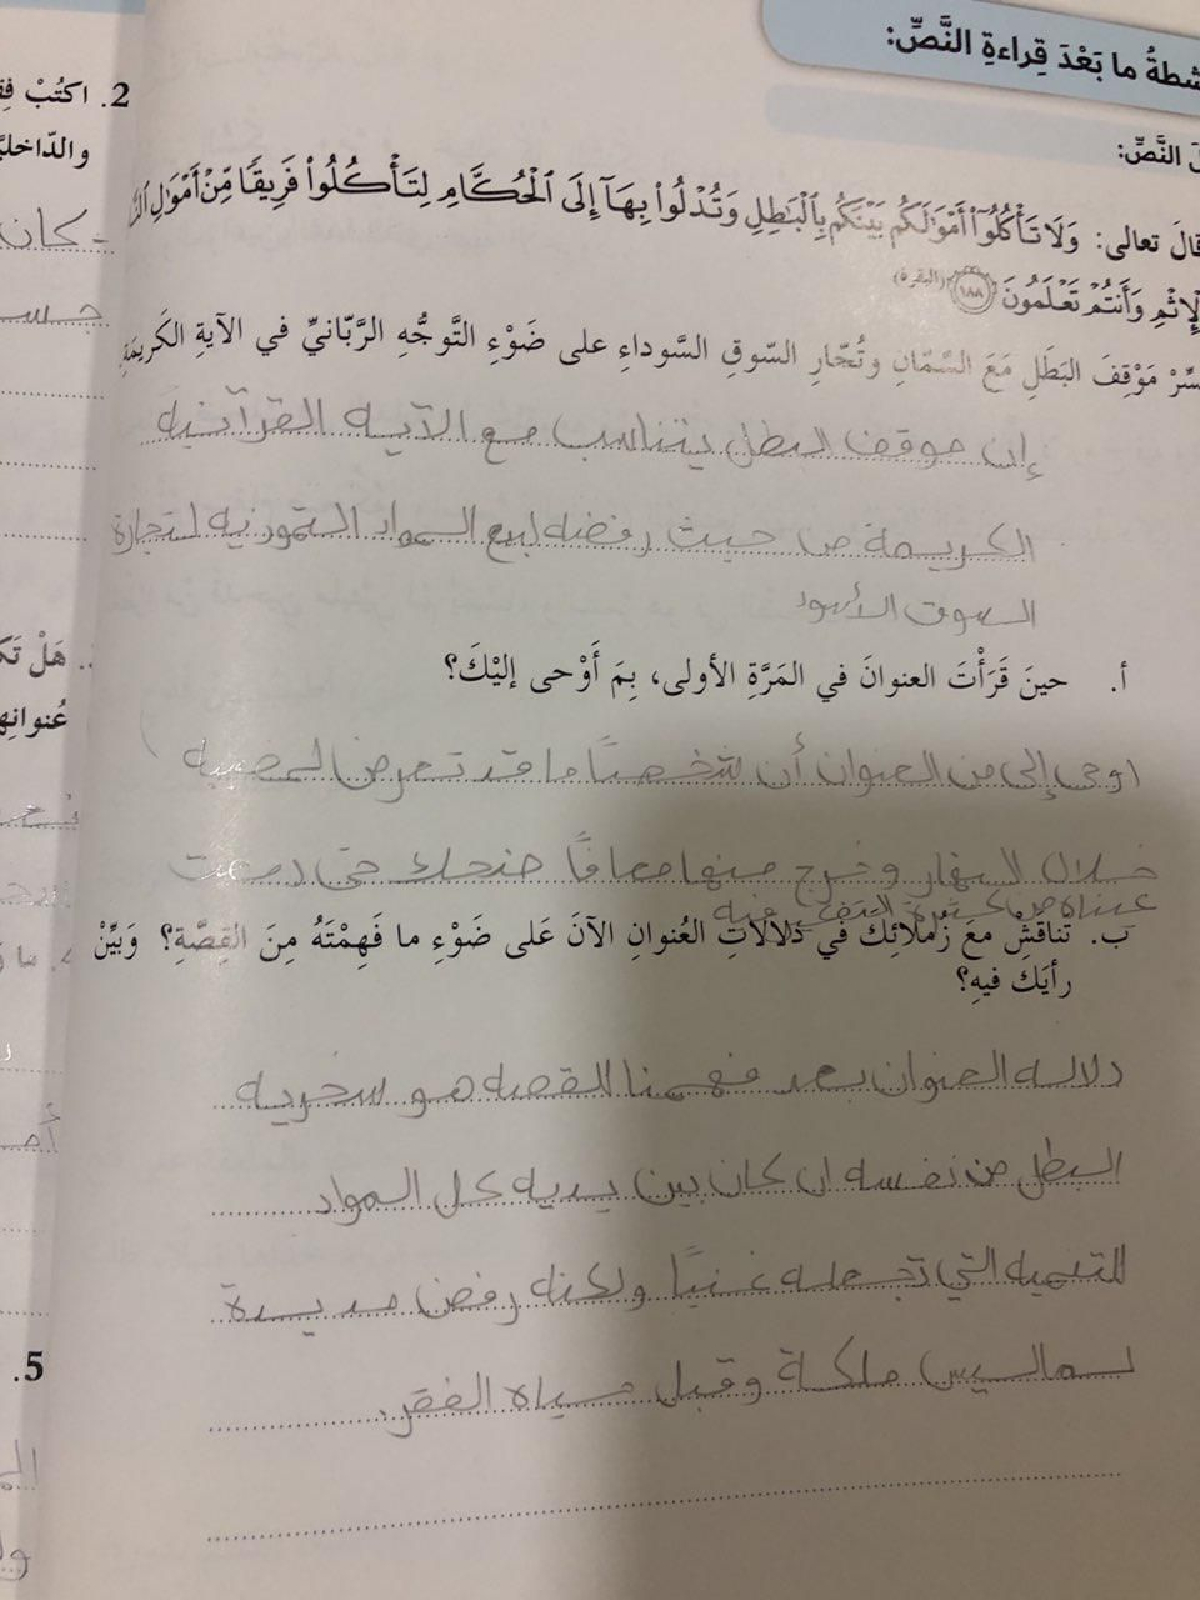 شطةُ ما بَعْدَ قِراءةِ النَّصِّ:
النَّصِّ:
قالَ تعالى: وَلَا تَأْكُلُوٓا۟ أَمْوَٰلَكُم بَيْنَكُم بِٱلْبَٰطِلِ وَتُدْلُوا۟ بِهَآ إِلَى ٱلْحُكَّامِ لِتَأْكُلُوا۟ فَرِيقًا مِّنْ أَمْوَٰلِ
لْإِثْمِ وَأَنتُمْ تَعْلَمُونَ ١٨٨ (البقرة)
سِّرْ مَوْقِفَ البَطَلِ مَعَ السَّمّانِ وتُجّارِ السّوقِ السَّوداءِ على ضَوْءِ التَّوجُّهِ الرَّبّانيِّ في الآيةِ الكَريمَةِ
إن موقف البطل يتناسب مع الآيه القرآنيه
الكريمة من حيث رفضه لبيع المواد التموينيه لتجارة
السوق الأسود
أ. حينَ قَرَأْتَ العنوانَ في المَرَّةِ الأولى، بِمَ أَوْحى إليْكَ؟
اوحى إلي من العنوان أن شخصيتًا ما قد تعرض لمصيبه
خلال النهار وخرج منها معافًا ضحك حتى دمعت
عيناه من كثرة
ب. تَناقَشْ معَ زُملائِكَ في دَلالاتِ العُنوانِ الآنَ عَلى ضَوْءِ ما فَهِمْتَهُ مِنَ القِصَّةِ؟ وَبَيِّنْ
رأيَك فيهِ؟
دلاله العنوان بعد فهمنا للقصه هو سخريه
البطل من نفسه ان كان بين يديه كل المواد
التي تجعله غنيًا ولكنه رفض مد يده
لما ليس ملكة وقبل حياه الفقر.
2. اكتُبْ
والدّاخليّ
- كان
هَلْ
عُنوانِها
5.